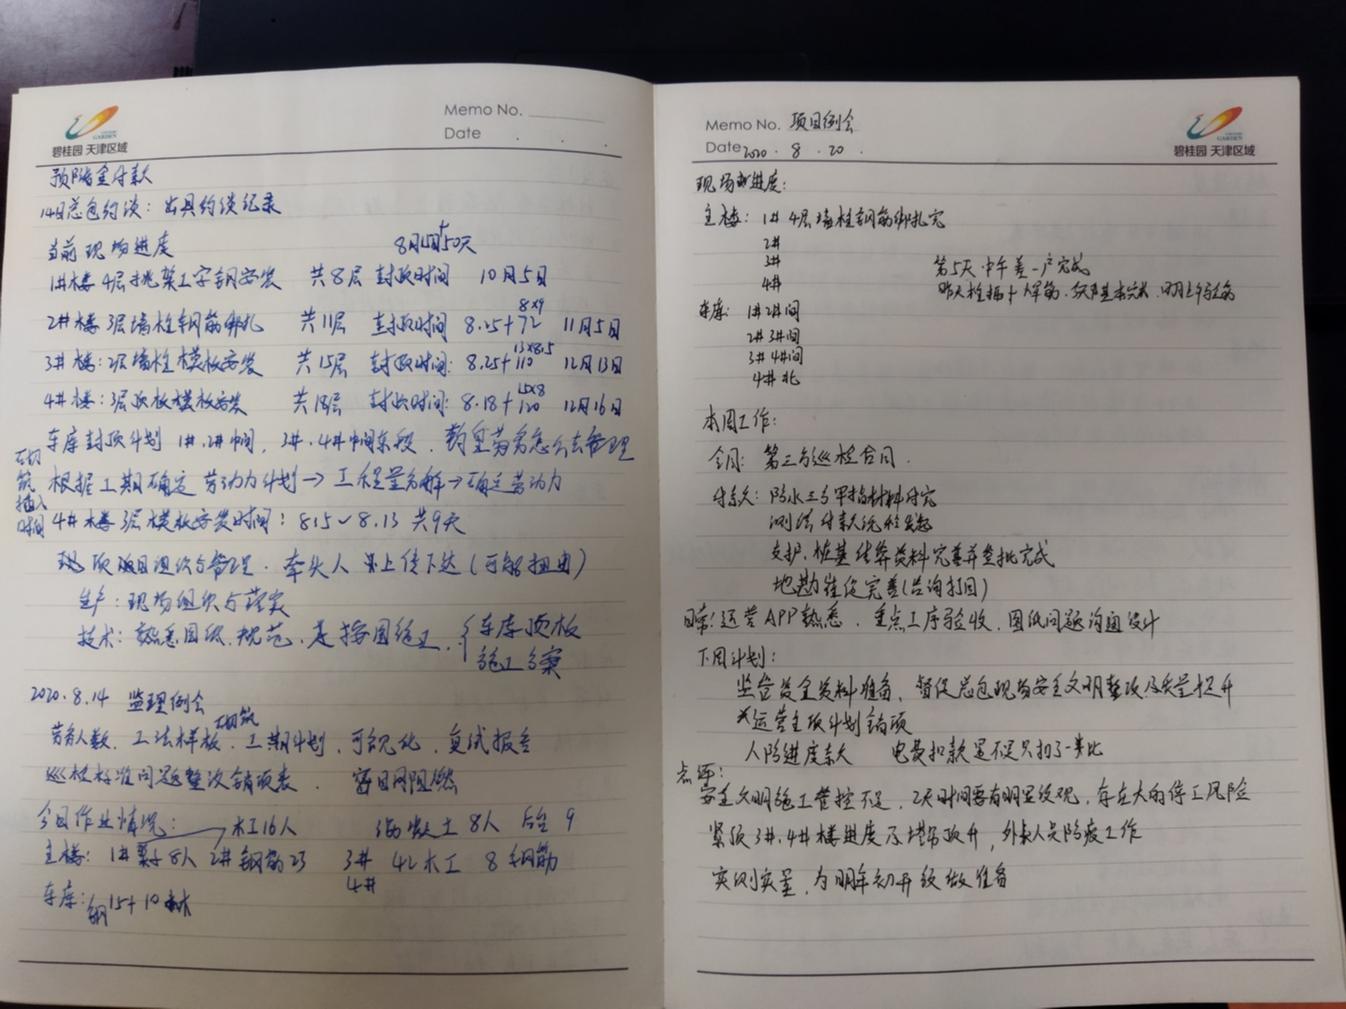 碧桂园 天津区域
Memo No.
Date
预储金付款
14日总包约谈：出具约谈纪录
当前现场进度
1#楼 4层挑架工字钢安装 共8层 封顶时间 10月5日
8×9
2#楼 3层墙柱钢筋绑扎 共11层 封顶时间 8.25+72 11月5日
13×8.5
3#楼：2层墙柱模板安装 共15层 封顶时间：8.25+110 12月13日
15×8
4#楼：3层顶板模板安装 共18层 封顶时间：8.18+120 12月16日
车库封顶计划 1#.2#中间，3#.4#中间东段，
砌筑插入时间
根据工期确定劳动力计划→工程量分解→确定劳动力
4#楼3层模板安装时间：8.5~8.13 共9天
项目组织与管理．牵头人 上传下达（可能扭曲）
生产：现场组织与落实
技术：熟悉图纸、规范，是按图施工，{车库顶板
施工方案
2020.8.14 监理例会
砌筑
劳务人数．工法样板．工期计划，可视化，复试报告
巡检标准问题整改销项表．密目网阻燃
今日作业情况： 木工16人 砼 8人 后台 9
主楼：1# 架子8人 2#钢筋23 3# 42木工 8钢筋
4#
车库：钢15+10木
碧桂园 天津区域
Memo No. 项目例会
Date 2020.8.20.
现场进度：
主楼：1# 4层墙柱钢筋绑扎完
2#
3# 第5天 中午差一户完成
4#
车库：1#2#间
2#3#间
3#4#间
4#北
本周工作：
合同：第三方巡检合同．
付款：防水三方甲指材料付完
测绘付款流程
支护、桩基结算资料完善并签批完成
地勘 完善（咨询打回）
日常：运营APP熟悉．重点工序验收．图纸问题沟通设计
下周计划：
监管资金资料准备，督促总包现场安全文明整改及质量提升
运营主项计划销项
人防进度款 电费扣款是不是只扣了一半比
点评：
安全文明施工管控不足，2天时间要有明显改观，存在大的停工风险
紧抓3#.4#楼进度及塔吊改升，外来人员防疫工作
实测实量，为明年初开放做准备